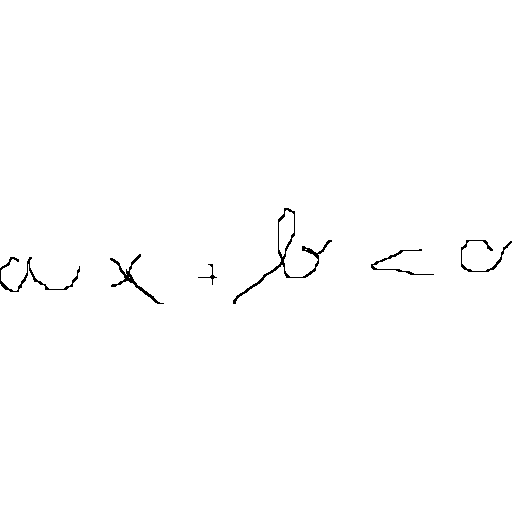 ax + b < 0